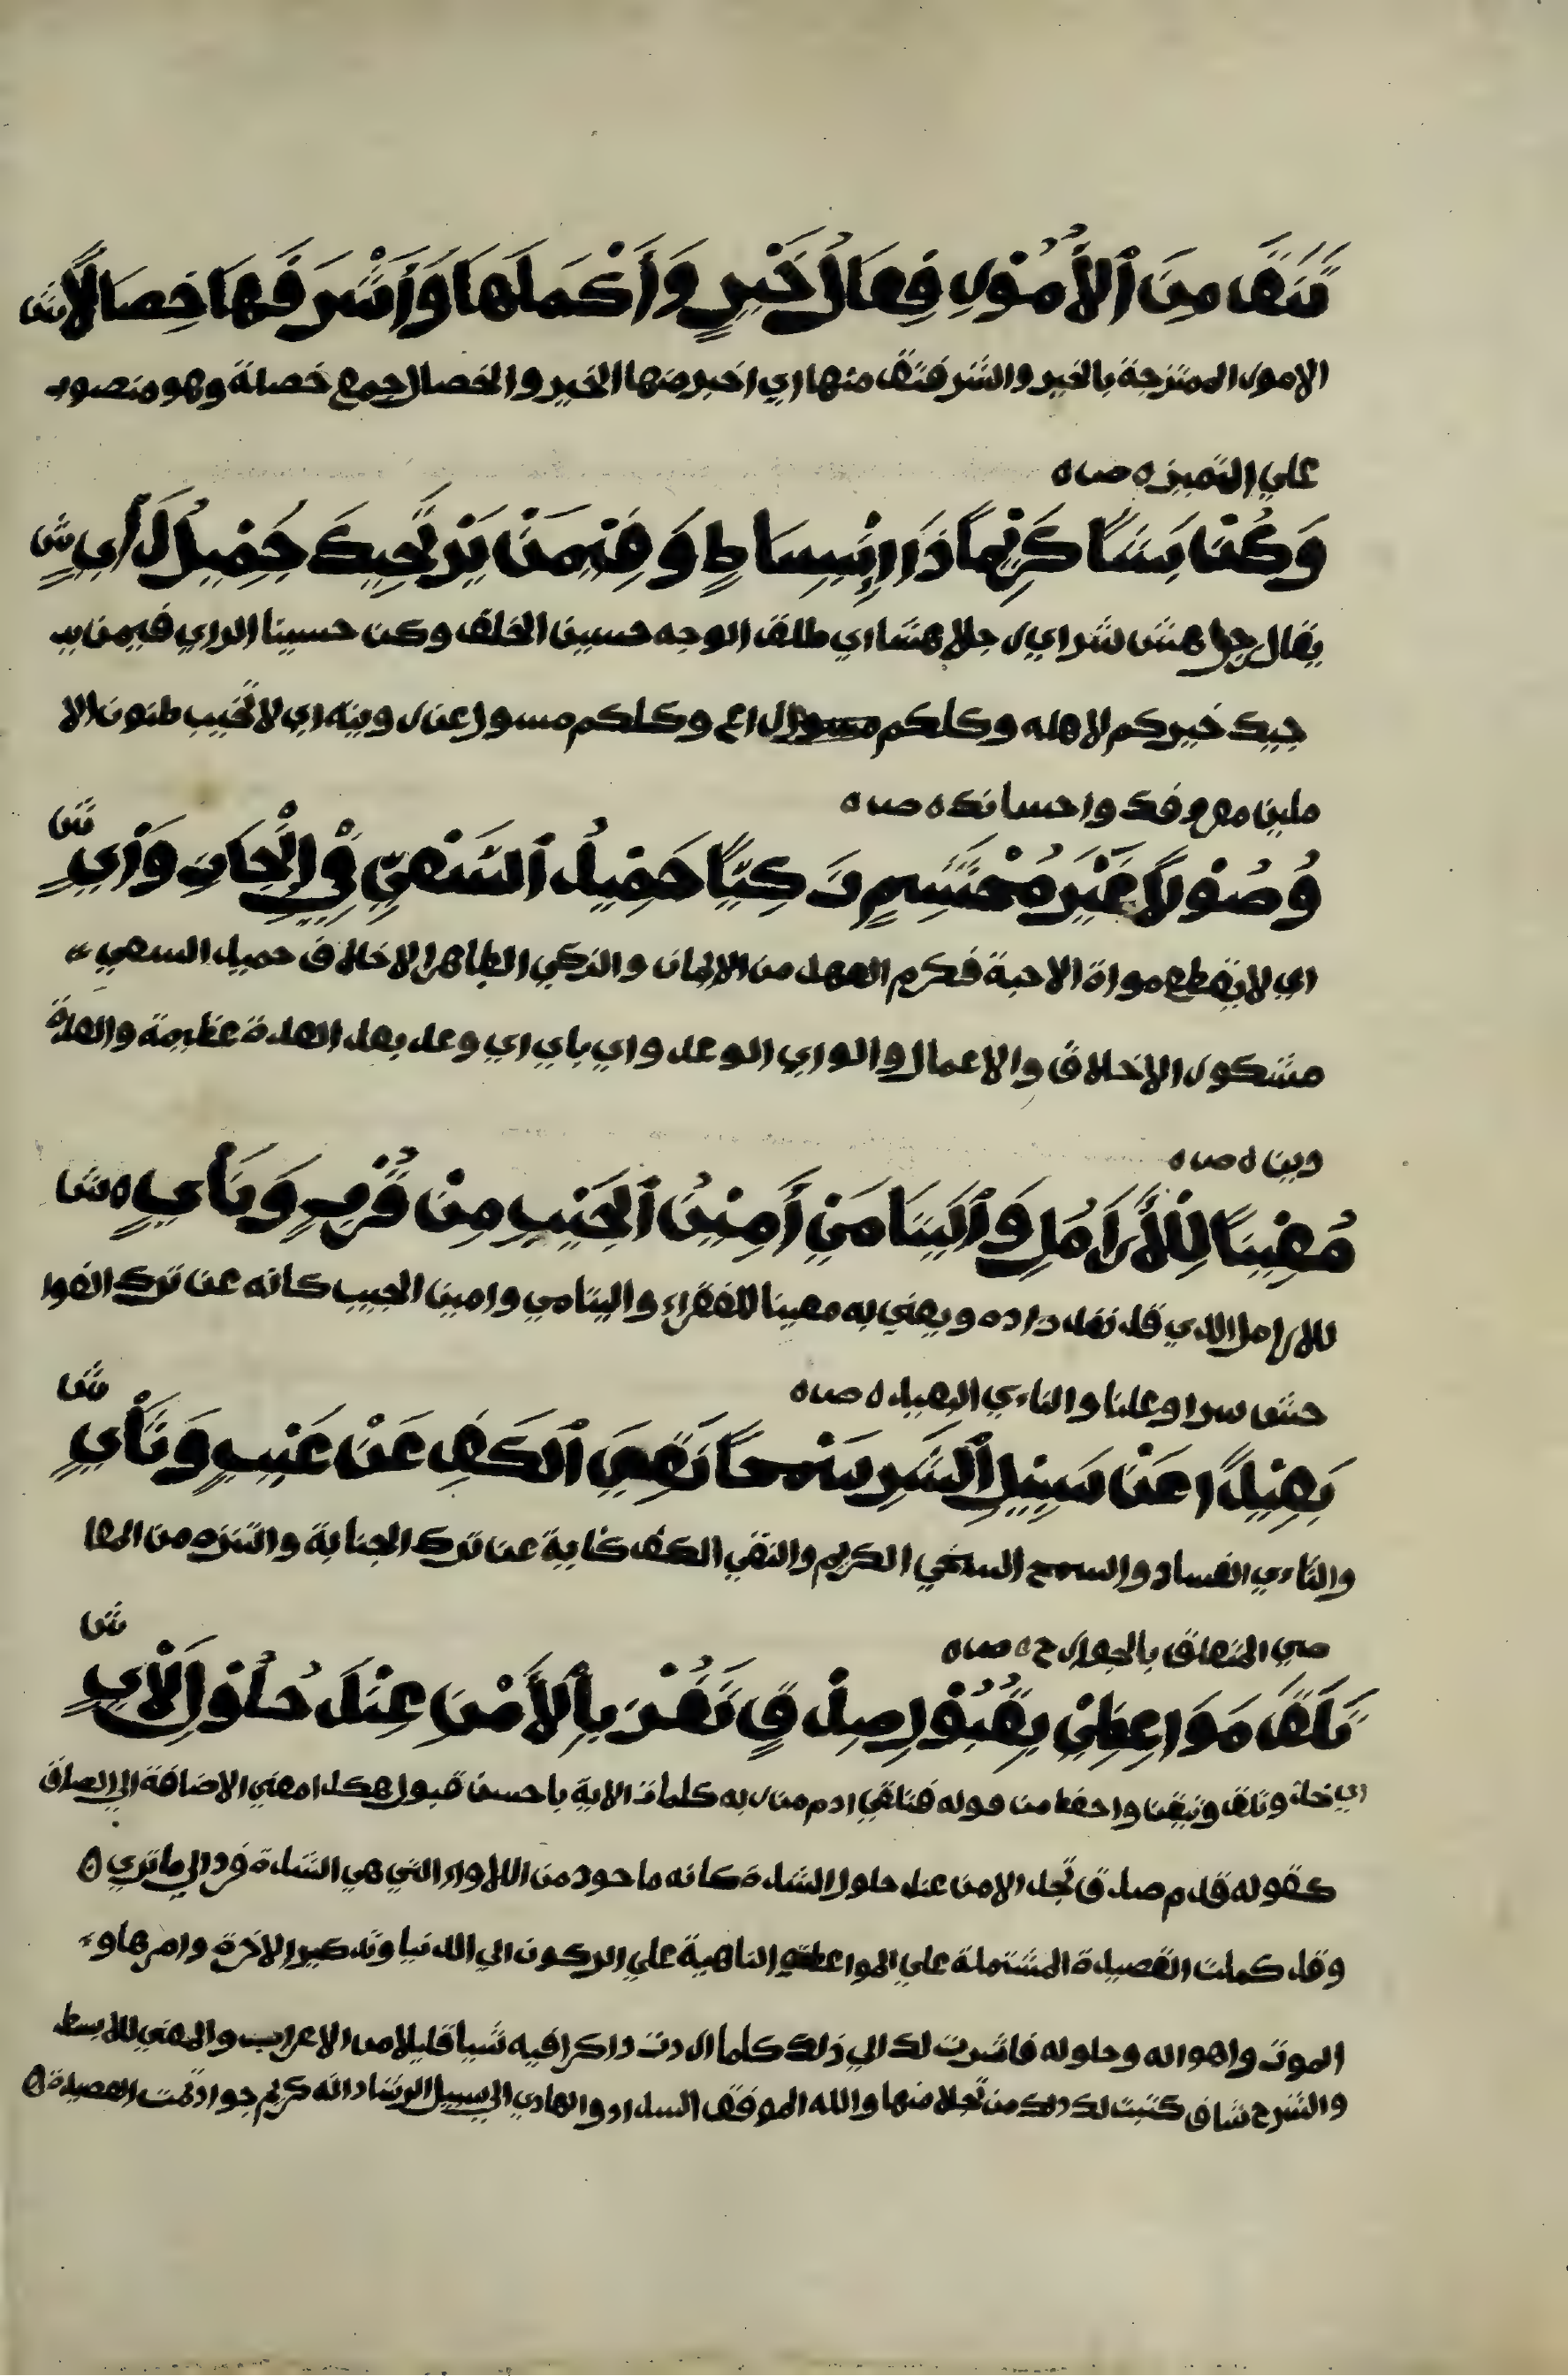 تَنَقَّ مِنَ ٱلأُمُوْرِ فِعَالَ خَيْرٍ وَأَكْمَلَهَا وَأَشْرَفَهَا خِصَالًا ش
الامور الممتزجة بالخير والشر فتنق منها اي اختر منها الخير والخصال جمع خصلة وهو منصوب
علي التميز ه ص ه
وَكُنْ بَشًّا كَرِيْمًا ذَا اِنْبِسَاطٍ وَفِيْمَنْ يَرْتَجِيْكَ جَمِيْلَ رَأْيٍ ش
يقال رجل هش بش راي رجلا هشا اي طلق الوجه حسين الخلق وكن حسينا الراي فيمن ير
جيك خيركم لاهله وكلكم راع وكلكم مسول عن روينه اي لا تخيب ظنون الا
ملين معروفك واحسانك ه ص ه
وُصُوْلاً غَيْرَ مُحْتَشِمٍ زَكِيًّا حَمِيْدَ ٱلسَّعْيِ فِي إِنْجَازِ وَأْيٍ ش
اي لا تقطع مواة الاحبة فكرم العهد من الايمان والزكي الطاهر الاخلاق حميد السعي
مشكور الاخلاق والاعمال والواي الوعد واي ياي اي وعد يعد العدة عظيمة والعدة
دين ه ص ه
مُعِيْنًا لِلْأَرَامِلِ وَٱلْيَتَامَي أَمِيْنَ ٱلْجَيْبِ مِنْ قُرْبٍ وَنَأْيٍ ه ش
للارامل الذي قد نفد زاده ويعني به معينا للفقراء واليتامي وامين الجيب كانه عن ترك الفوا
حش سرا وعلنا والناءي البعيد ه ص ه
ش
بَعِيْدًا عَنْ سَبِيْلِ ٱلشَّرِ سَمْحًا نَقِيَ ٱلْكَفِ عَنْ عَيْبٍ وَثَأْيٍ
والثاءي الفساد والسمح السخي الكريم والنقي الكف كناية عن ترك الجناية والتنزه من المعا
صي المتعلق بالجوارح ه ص ه
ش
تَلَقَّ مَوَاعِظِيْ بِقُبُوْلِ صِدْقٍ تَفُزْ بِٱلأَمْنِ عِنْدَ حُلُوْلِ لَأْيٍ
اي خذ وتلق وتيقنا واحفظ من قوله فتلقي ادم من ربه كلمات الاية باحسن قبول هكذا معني الاضافة الي الصدق
كقوله قدم صدق تجد الامن عند حلول الشدة كانه ماخوذ من اللاواء التي هي الشدة فرد الي ما تري ه
وقد كملت القصيدة المشتملة علي المواعظ الناهية علي الركون الي الدنيا وتذكير الاخرة وامرها و
الموت واهواله وحلوله فاشرت لك الي ذلك كلما اردت ذاكرا فيه شيا قليلا من الاعراب والمعني للابسط
والشرح شاف كتبت لك ذلك من تجلا منها والله الموفق السداد والهادي الي سبيل الرشاد انه كريم جواد تمت القصيدة ه